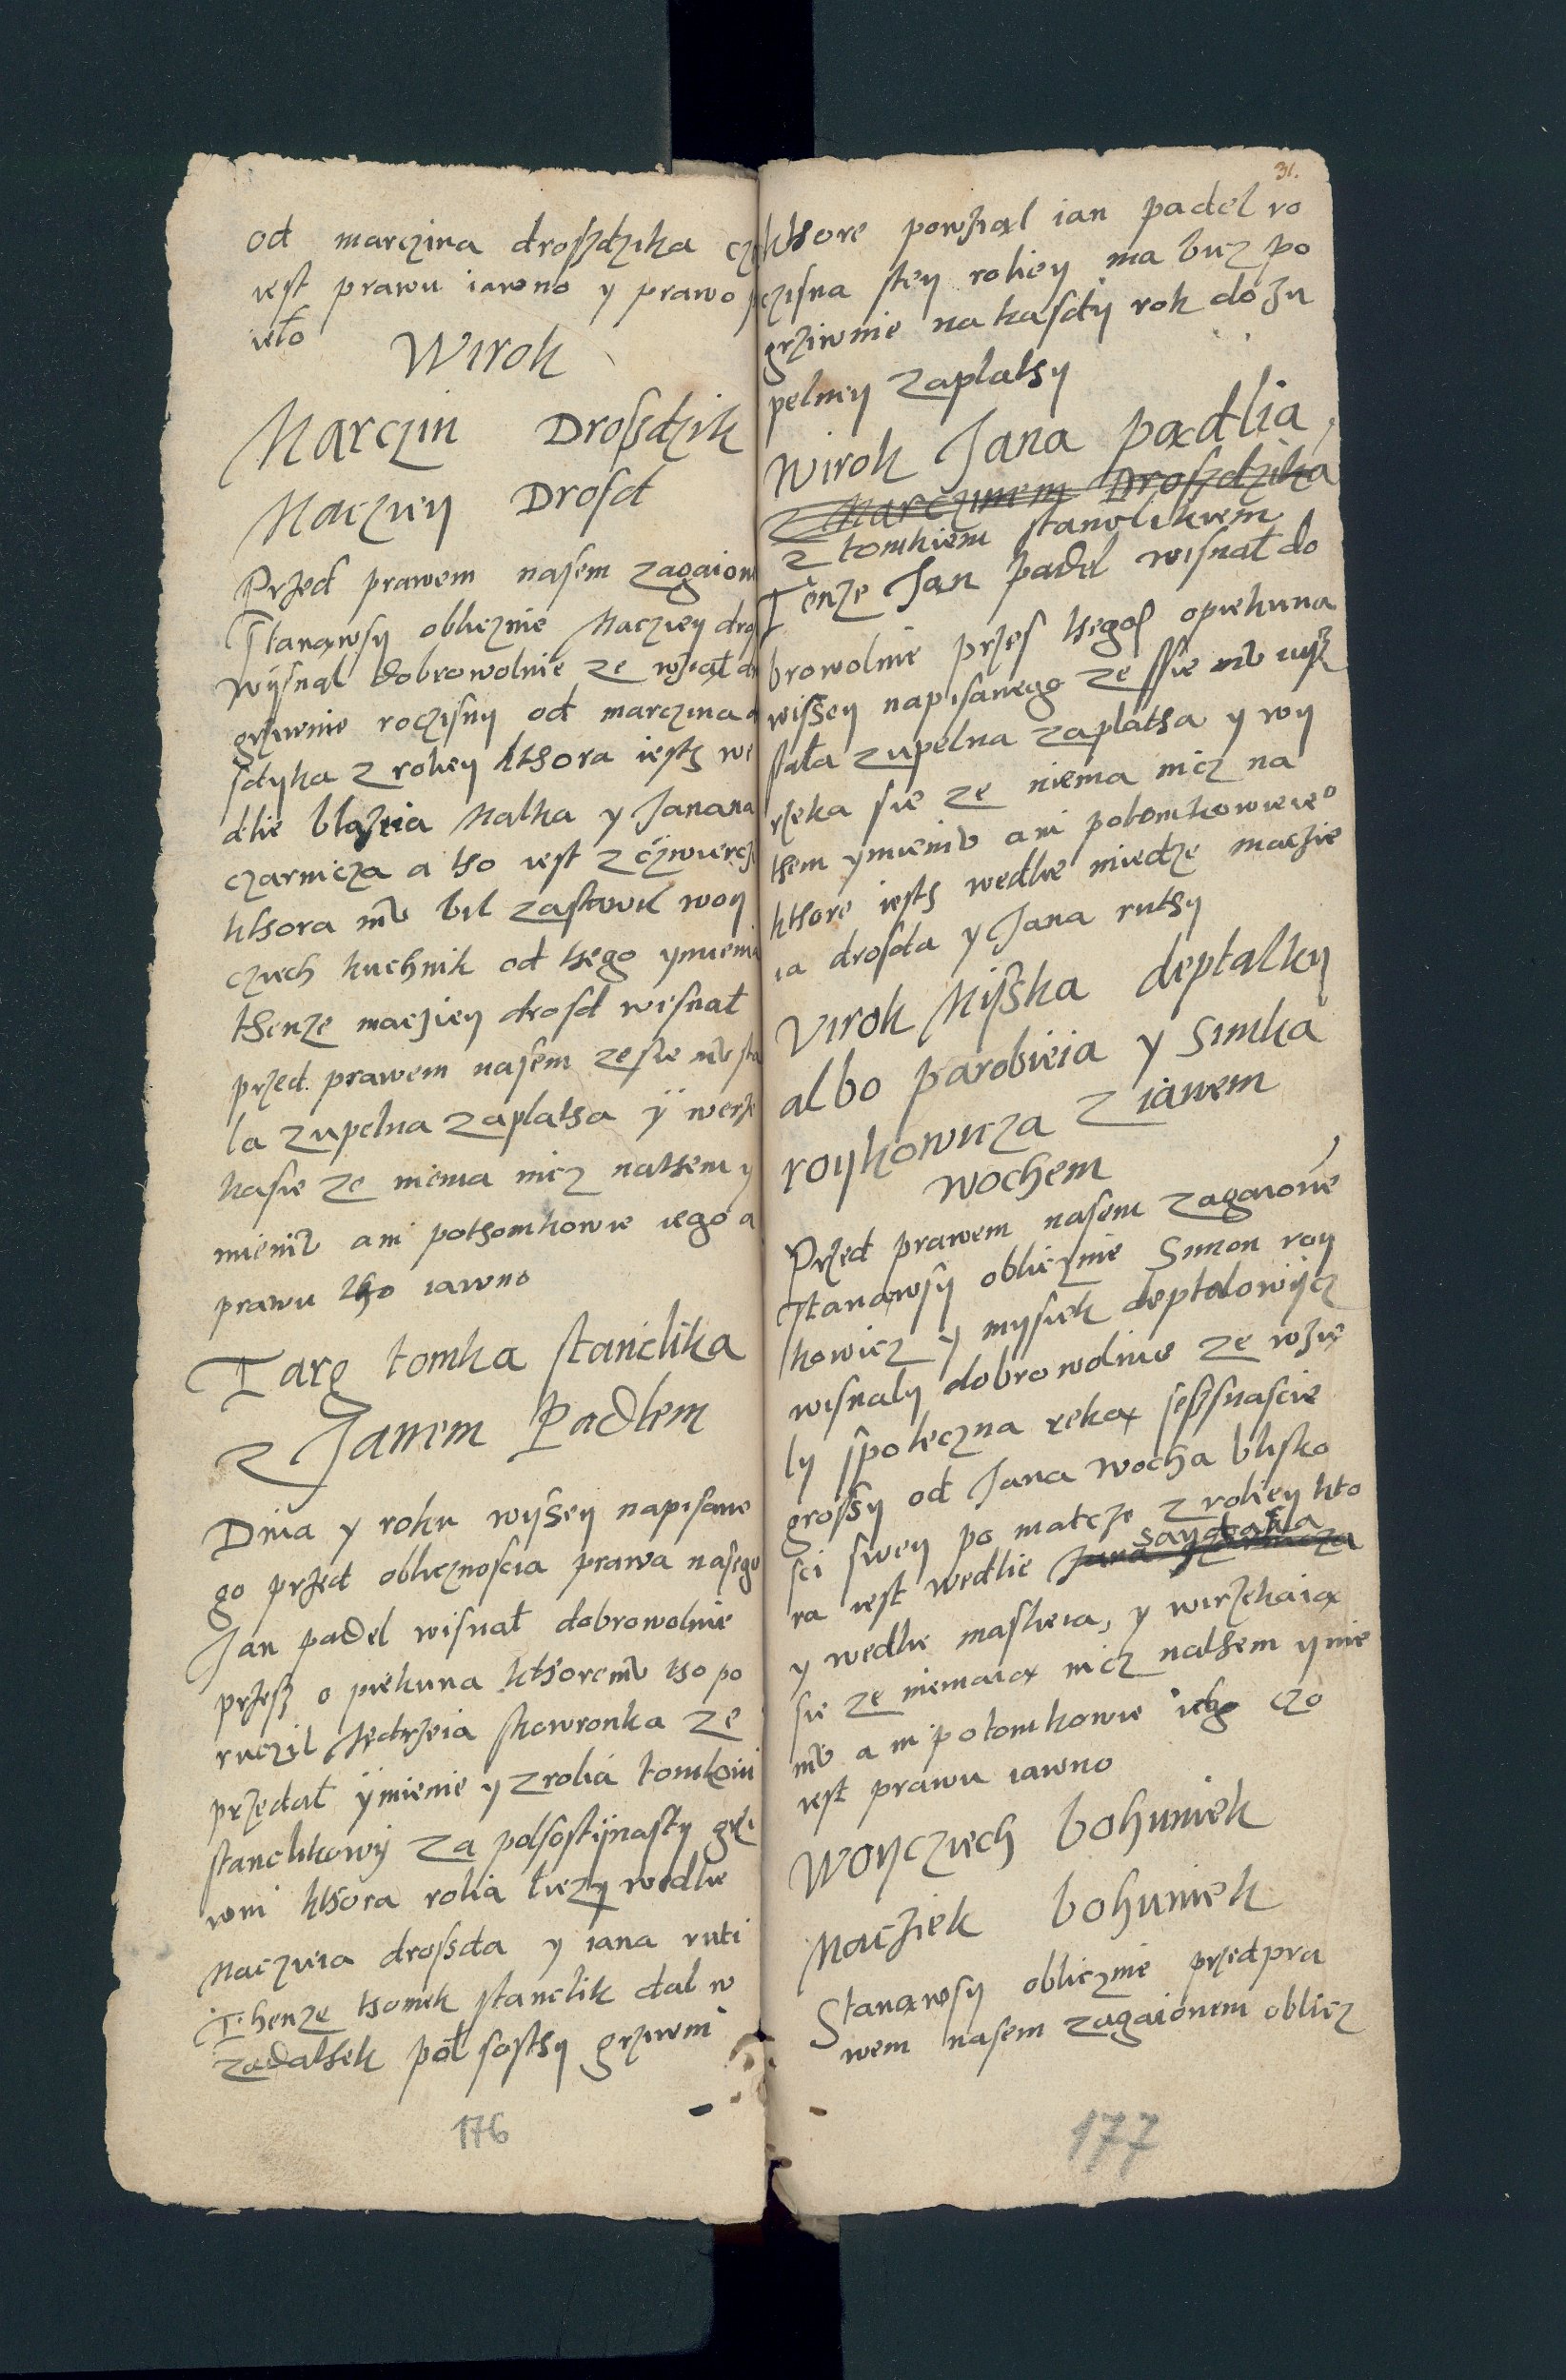 od marczina droszdzika cz
iest prawu iawno y prawo
ieło
Wirok
Marczin Droszdzik
Macziey Drosd
Przed prawem nasem zagaion
Stanąwsy obliicznie Macziey dro
wysnal dobrowolnie ze wział
grziwnie roczisny od marczina
sdzyka z roliey kthora iesth we
dlie blazeia Malka y Janana
czarnicza a tho iest z czwiercz
kthora mu bil zastawil woy
cziech kuchnik od thego ymieni
thenze macziey drosd wisnał
przed prawem nasem ze sie mu sta
la zupelna zaplatha y werze
kasie ze niema nicz nathem y
mieniu ani pothomkowie iego a
prawu tho iawno
Targ tomka stanclika
z Janem Padlem
Dnia y roku wyssey napisane
go przed oblicznoscia prawa nasego
Jan padel wisnał dobrowolnie
przesz opiekuna kthoremu tho po
ruczil Jędrzeia skowronka ze
przedał ymienie y z rolia tomkowi
stanclikowy za polsostynasty grzi
wni kthora rolia liezy wedlie
Maczieia drossda y iana ruti
Thenze thomek stanclik dal w
zadathek poł sosthy grziwni
176
31.
kthore powzial ian padel ro
czisna stey roliey ma bucz po
grziwnie na kasdy rok do zu
pelney zaplathy
Wirok Jana padlia
z Marczinem Droszdzika
z tomkiem stanclikiem
Tenze Jan padel wisnał do
browolnie przes thegosz opiekuna
wissey napisanego ze ssie mu uysz
stała zupelna zaplatha y wy
rzeka sie ze niema nicz na
them ymieniu ani potomkowie ieo
kthore iesth wedlie miedze maczie
ia drosda y Jana ruthy
Virok Myska deptalky
albo parobieia y Simka
roykowicza z ianem
wochem
Przed prawem nasem zagaione
Stanąwsy oblicznie Simon roy
kowicz y mysiek deptalowycz
wisnaly dobrowolnie ze wzię
ly spoleczna reką seszsnascie
grossy od Jana wocha blisko
sci swey po matcze z roliey kto
ra iest wedlie Jana czarnicza
saydaka
y wedlie maslieia, y wirzekaią
sie ze niemaią nicz nathem ymie
niu ani potomkowie ich czo
iest prawu iawno
Woycziech bohuniek
Macziek bohuniek
Stanąwsy oblicznie przed pra
wem nasem zagaionem oblicz
177